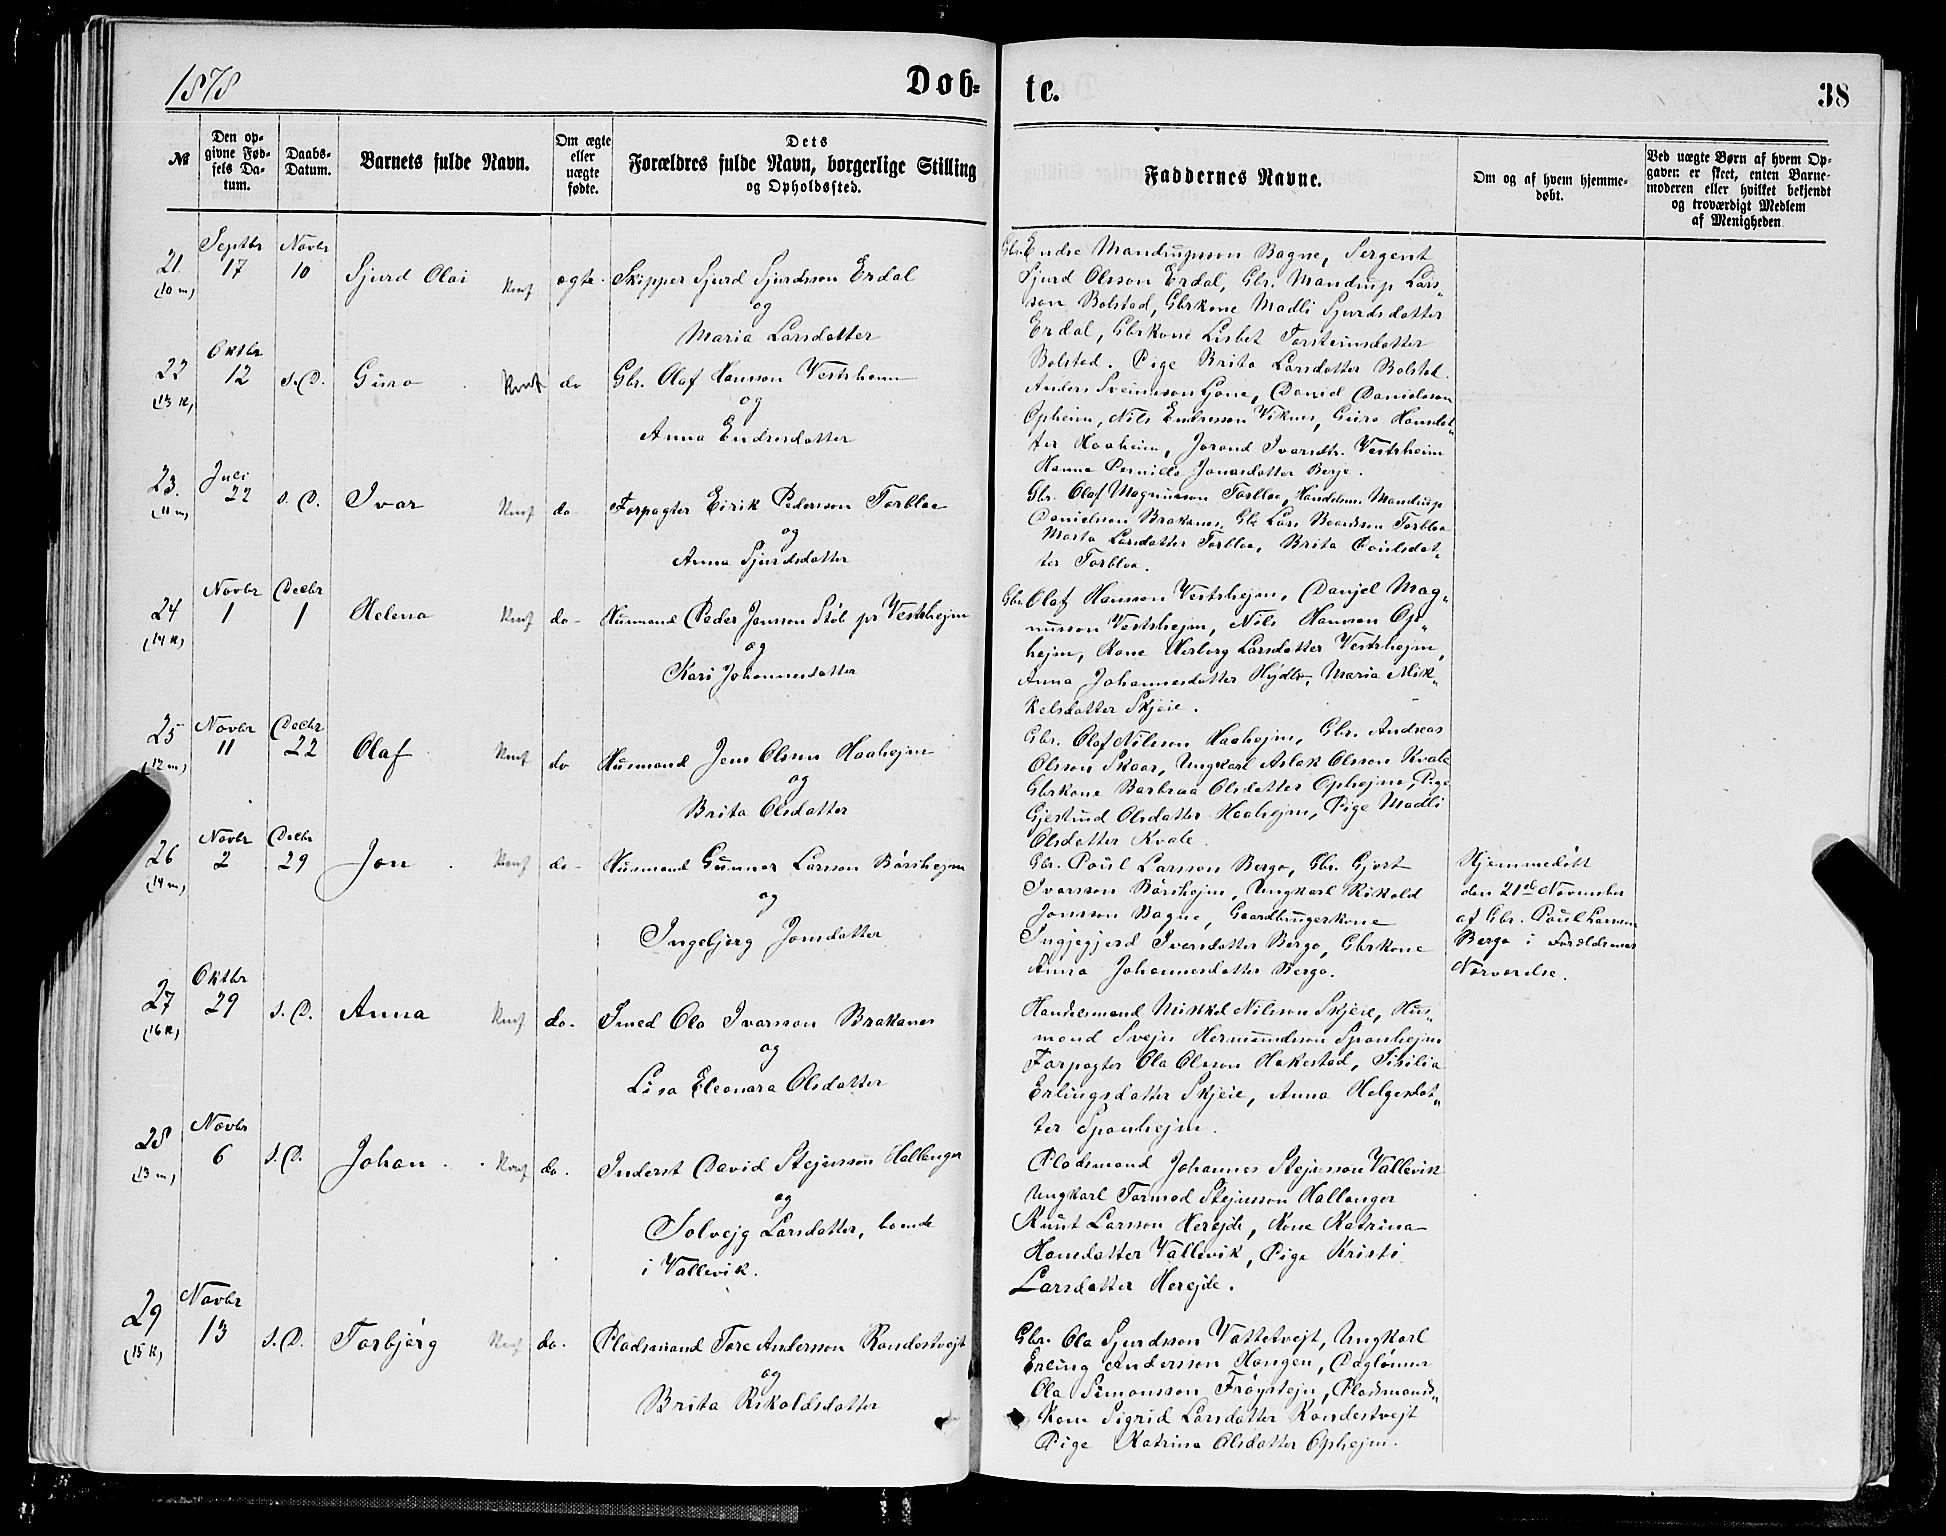 1878
Døb=
te.
38
№
Den op-
givne Fød-
sels Da-
tum.
Daabs-
Datum.
Barnets fulde Navn.
Om ægte
eller
uægte
fødte.
Dets
Forældres fulde Navn, borgerlige Stilling
og Opholdssted.
Faddernes Navne.
Om og af hvem hjemme-
døbt.
Ved uægte Børn af hvem Op-
gaven er skeet, enten Barne-
moderen eller hvilket bekjendt
og troværdigt Medlem
af Menigheden
21. Septbr 17 Novbr 10 Sjurd Olai ægte. Skipper Sjurd Sjurdsson Erdal
(10 m)
og
Maria Larsdatter
Gbr. Endre Mandrupsson Bagne, Sergent
Sjurd Olsson Erdal, Gbr. Mandrup Lars„
son Bolstad, Gbrkone Madli Sjurdsdatter
Erdal, Gbrkone Lisbet Torsteinsdatter
Bolstad. Pige Brita Larsdatter Bolstad.
22 Oktbr 12 s.D. Guro do Gbr. Olaf Hansson Vestrheim
(13 K)
og
Anna Endresdatter
Anders Sveinsson Ljone, David Davidsson
Opheim, Nils Endresson Viknes, Guro Hansdat„
ter Haaheim, Jorand Ivarsdtr. Vestrheim
Hanna Pernille Jonasdatter Berje.
23. Juli 22 s.D. Ivar do Forpagter Eirik Pedersson Torbloe
(11 m)
og
Anna Sjurdsdatter
Gbr. Olaf Magnusson Torbloe, Handelsm. Mandrup
Danielson Brakanes, Gbr Lars Baardson Torbloe
Marta Larsdatter Torbloe, Brita Poulsdat„
ter Torbloe.
24 Novbr 1 Decbr 1 Helena do- Husmand Peder Jonsson Støl pr Vestrhejm
(14 K)
og
Kari Johannesdatter
Gbr. Olaf Hansson Vestrhejm, Danjel Mag„
nusson Vestrhejm, Nils Hansson Op„
hejm, Kone Herborg Larsdatter Vestrhejm,
Anna Johannesdatter Hydle, Maria Mik„
kelsdatter Skjeie.
25 Novbr 11 Decbr 22 Olaf do Husmand Jens Olsen Haahejm
(12 m)
og
Brita Olsdatter
Gbr. Olaf Nilsson Haahejm, Gbr. Andreas
Olsson Skaar, Ungkarl Aslak Olsson Kvale
Gbrkone Barbraa Olsdatter Ophejm, Pige
Gjertrud Olsdatter Haahejm, Pige Madli
Olsdatter Kvale.
26 Novbr 2 Decbr 29 Jon do- Husmand Gunnar Larsson Børshejm
(14 m)
og
Ingebjørg Jonsdatter
Gbr. Poul Larsson Bergo, Gbr. Gjest
Ivarsson Børshejm, Ungkarl Rikold
Jonsson Bagne, Gaardbrugerkone
Ingjegjerd Ivarsdatter Bergo, Gbrkone
Anna Johannesdatter Bergo.
Hjemmedøbt
den 21de November
af Gbr. Poul Larsson
Bergo i Forældrenes
Nærværelse.
27 Oktbr 29 s.D. Anna do. Smed Ola Ivarsson Brakanes
(16 K)
og
Lisa Eleonara Olsdatter
Handelsmand Mikkel Nilsson Skjeie, Hus„
mand Svejn Hermundsson Sponhejm
Forpagter Ola Olsson Hakestad, Sisilia
Erlingsdatter Skjeie, Anna Helgesdat„
ter Sponhejm.
28 Novbr 6 s.D. Johan do. Inderst David Stejnsson Hallanger
(13 m)
og
Solvejg Larsdatter, boende
i Vallevik.
Pladsmand Johannes Stejnsson Vallevik
Ungkarl Tormod Stejnsson Hallanger
Knut Larsson Herejde, Kone Katrina
Hansdatter Vallevik, Pige Kristi
Larsdatter Herejde.
29 Novbr 13 s.D. Torbjørg do. Pladsmand Tore Andersson Rondestvejt
(15 K)
og
Brita Rikoldsdatter
Gbr. Ola Sjurdsson Vattetvejt, Ungkarl
Erling Andersson Hongen, Dagløner
Ola Simonsson Frøystejn, Pladsmands„
kone Sigrid Larsdatter Rondestvejt
Pige Katrina Olsdatter Ophejm.